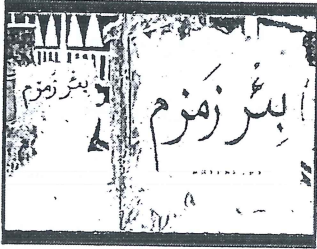 بئر زمزم
بِئْر زَمزم